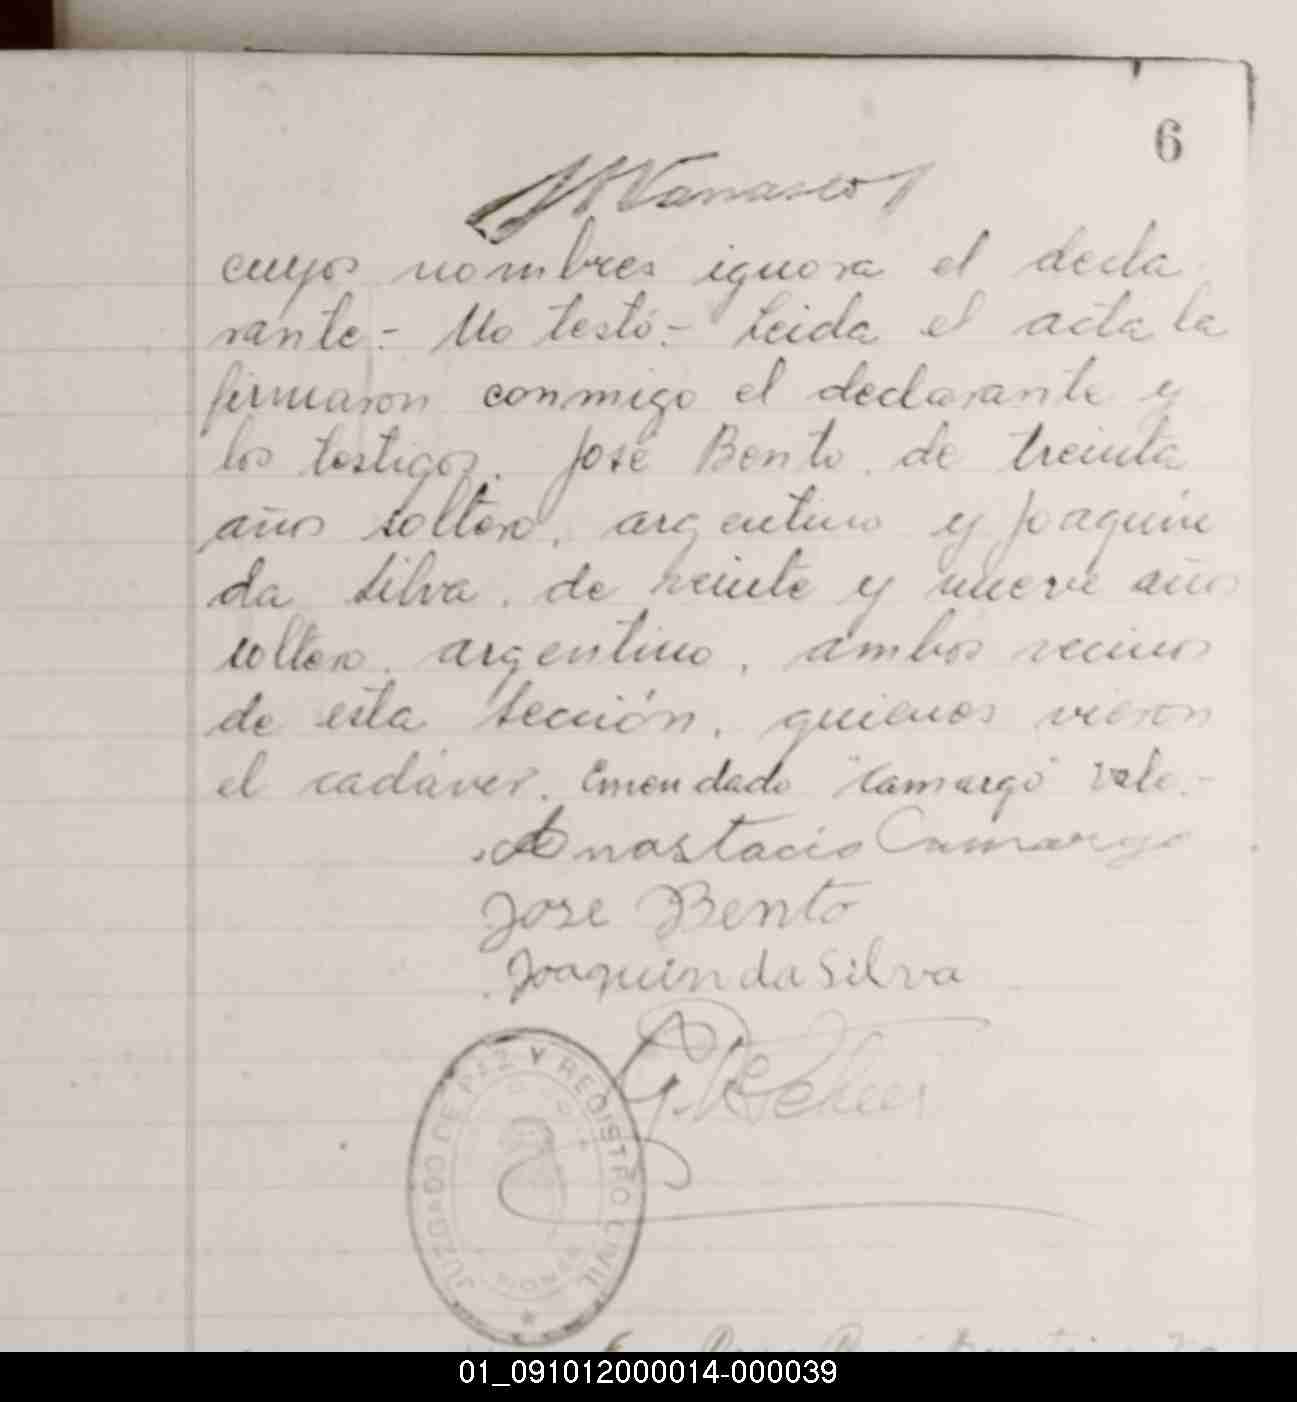 6
cuyos nombres ignora el decla
rante.- No testó.- Leida el acta la
firmaron conmigo el declarante y
los testigos. José Bento, de treinta
años soltero, argentino y Joaquin
da Silva, de veinte y nueve años
soltero, argentino, ambos vecinos
de esta sección, quienes vieron
el cadáver. Emendado "Camargo" Vale.-
Anastacio Camargo
Jose Bento
Joaquin da Silva
JUZGADO DE PAZ Y REGISTRO CIVIL
01_091012000014-000039